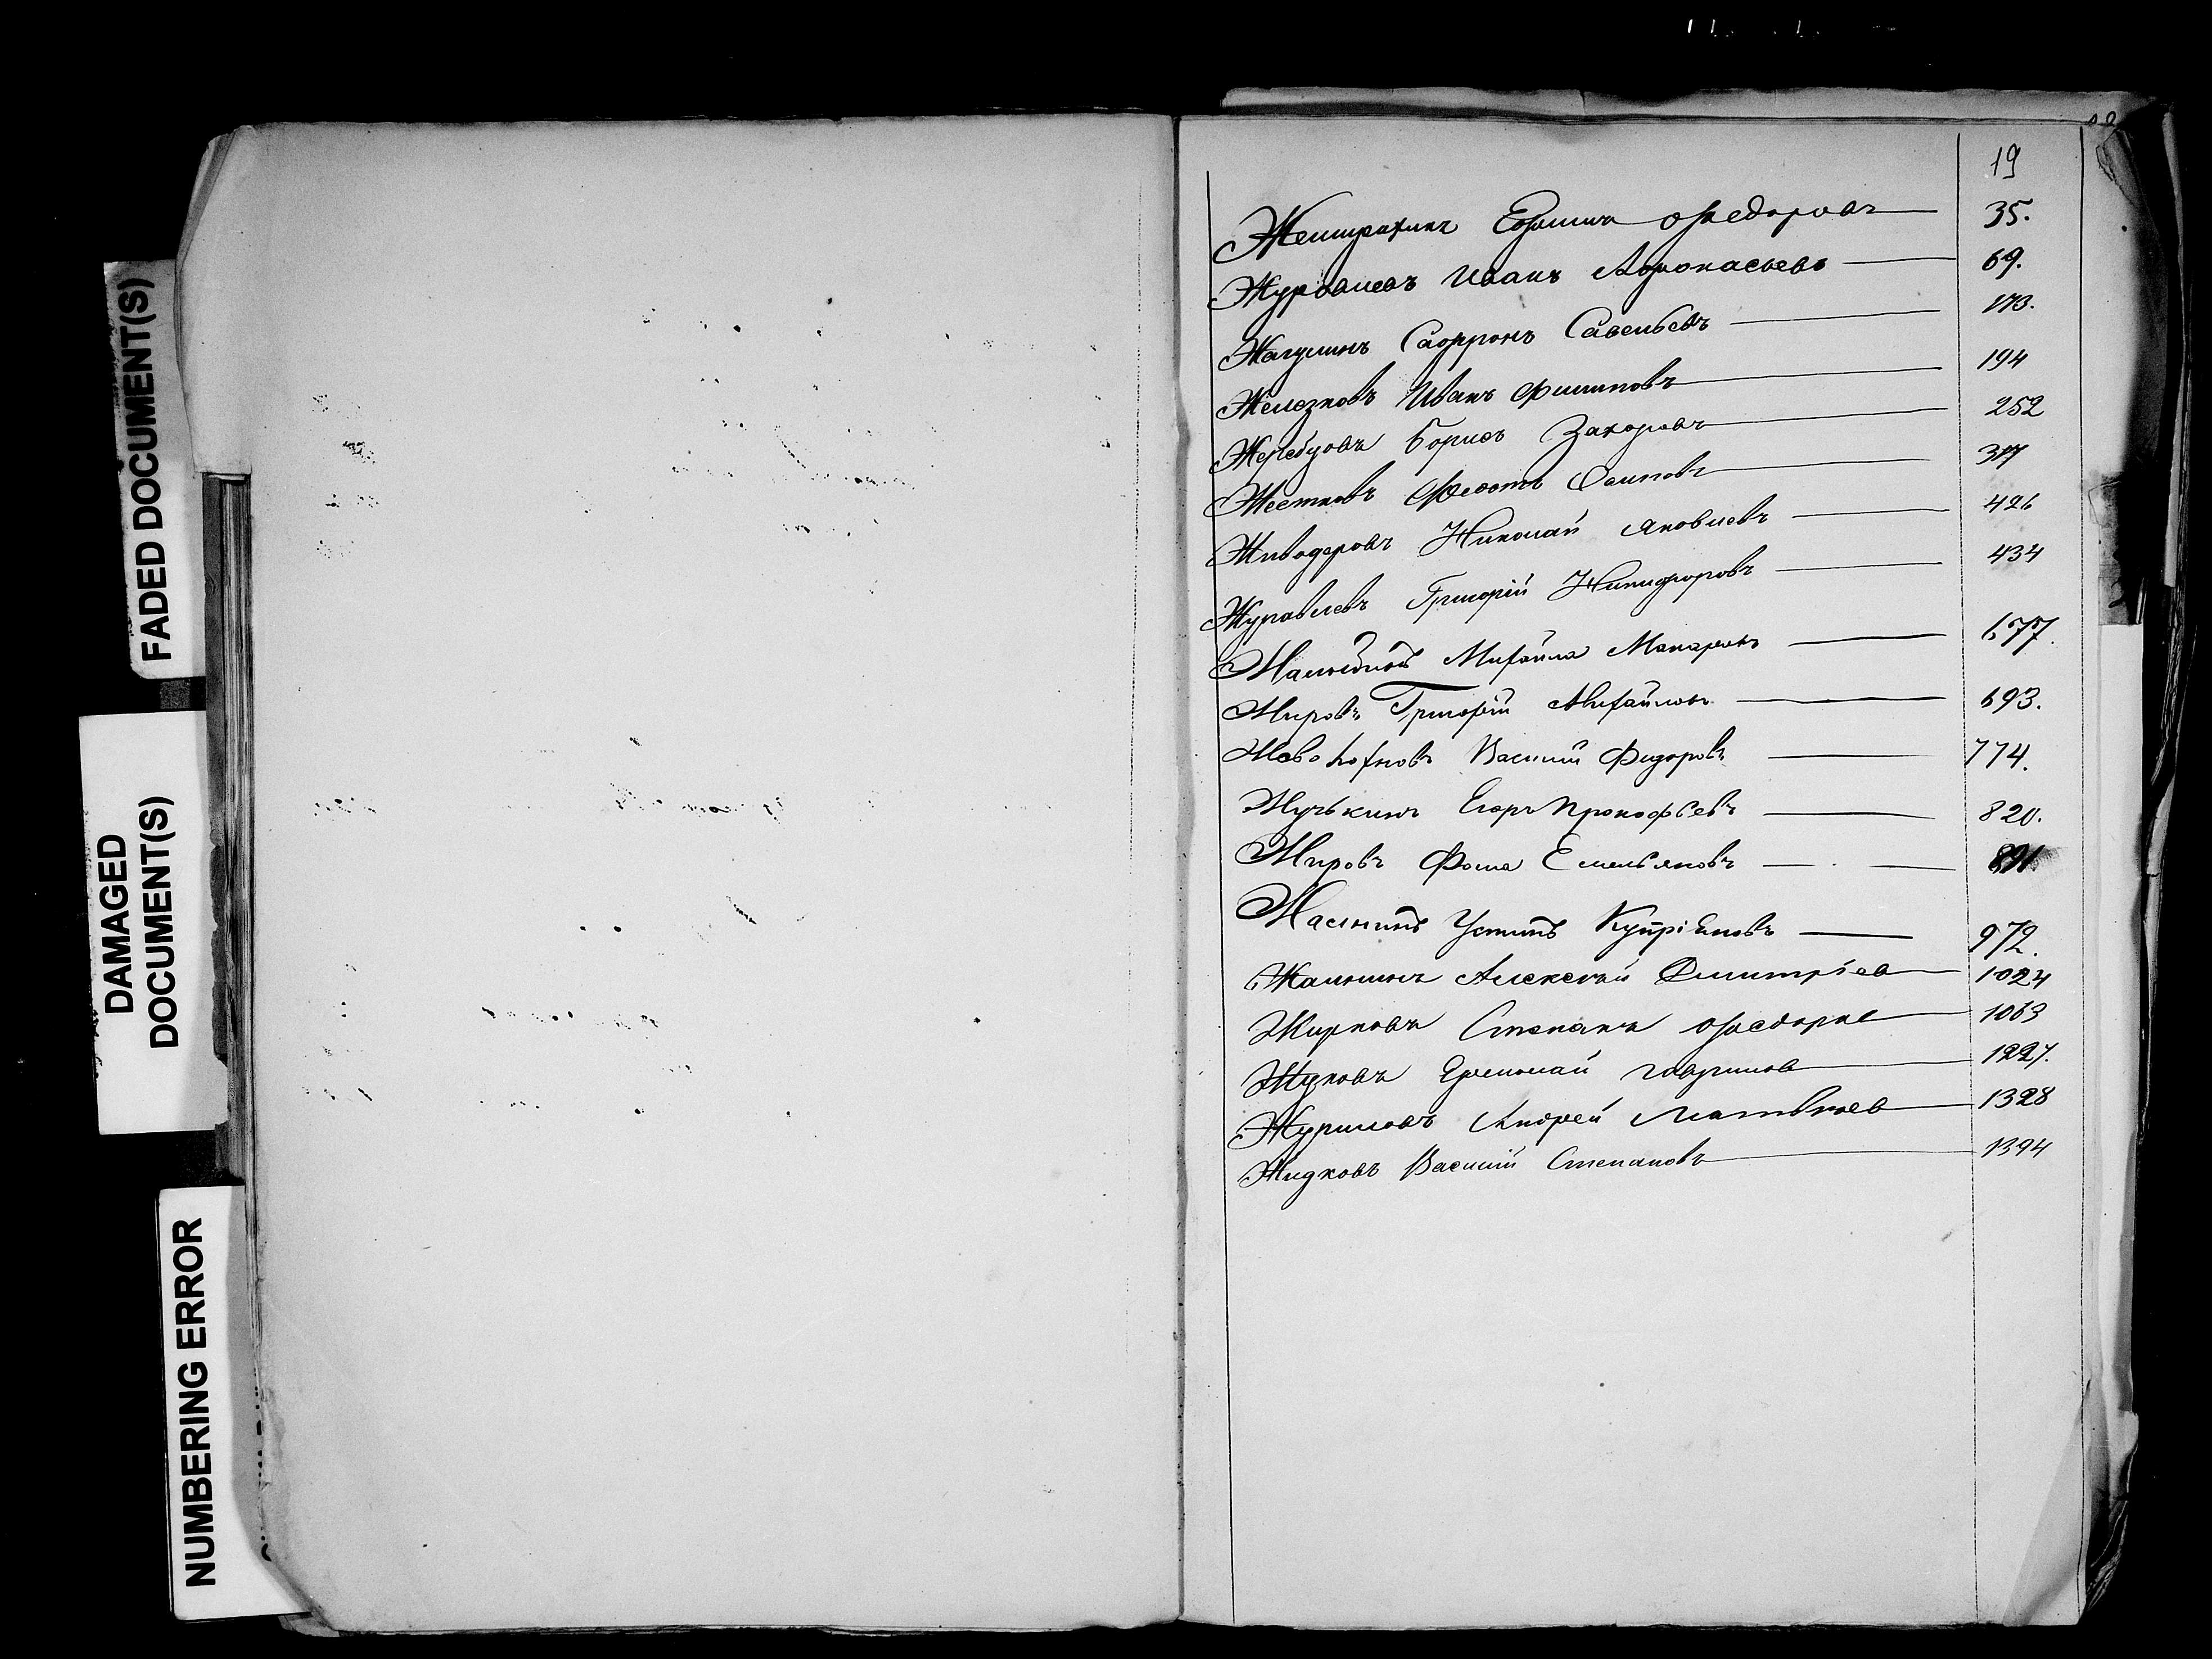 FADED DOCUMENT(S)
DAMAGED
DOCUMENT(S)
NUMBERING ERROR
19
Ефимъ Федоровъ 35.
Журавлевъ Иванъ Афонасьевъ 69.
Жагулинъ Сафронъ Савельевъ 173.
Железновъ Иванъ Филиповъ 194
Жеребцовъ Борисъ Захаровъ 252
Жестковъ Федотъ Осиповъ 317
Живодеровъ Николай Яковлевъ 426
Журавлевъ Григорій Никифоровъ 434
Михайла Макаровъ 677.
Жировъ Григорій Михайловъ 693.
Василій Фидоровъ 774.
Жучькинъ Егоръ Прокофьевъ 820.
Жировъ Фома Емельяновъ 891
Устинъ Купріяновъ 972.
Жалнинъ Алексѣй Дмитріев 1024
Жирновъ Степанъ Федоров 1063
Жуковъ Ермолай Гаврилов 1227.
Журиловъ Андрей Матвѣев 1328
Жидковъ Василій Степановъ 1394